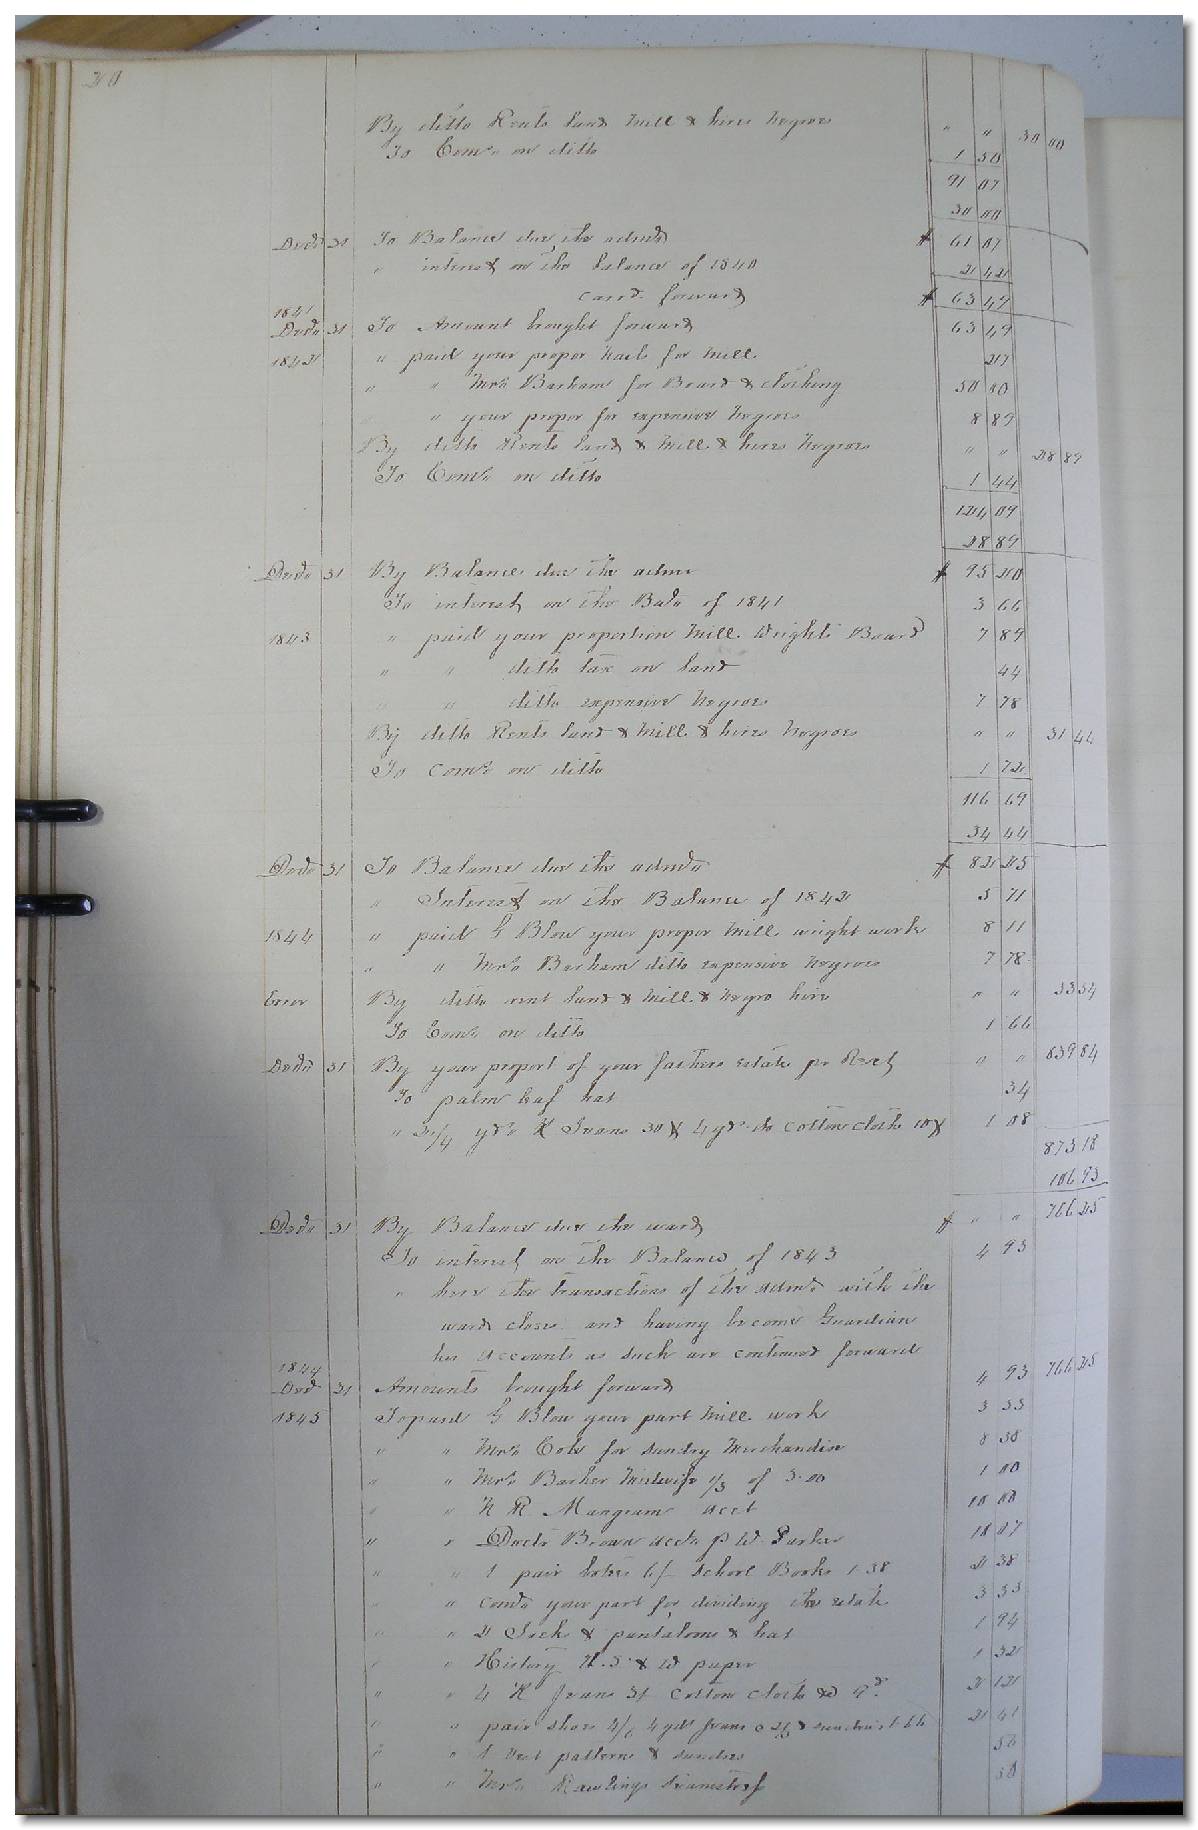 20
By ditto Rents land mill & hires Negroes " " 30 00
To Coms on ditto 1 50
91 07
30 00
Decr 31 To Balance due the admr $ 61 07
" interest on the balance of 1840 2 42
card forward $ 63 49
1841
Decr 31 To Amount brought forward 63 49
1842 " paid your propor Nails for Mill 27
" " Mrs Barham for Board & clothing 50 00
" " your propor for expensive Negroes 8 89
By ditto Rents land & Mill & hires Negroes " " 28 89
To Coms on ditto 1 44
124 09
28 89
Decr 31 By Balance due the admr $ 95 20
To interest on the Bale of 1841 3 66
1843 " paid your proportion Mill Wrights Board 7 89
" " ditto tax on land 44
" " ditto expensive Negroes 7 78
By ditto Rents land & Mill & hires Negroes " " 34 44
To Coms on ditto 1 72
116 69
34 44
Decr 31 To Balance due the admr $ 82 25
" Interest on the Balance of 1842 5 71
1844 " paid G Blow your propor Mill wright work 8 11
" " Mrs Barham ditto expensive Negroes 7 78
Error By ditto rent land & Mill & Negro hire " " 33 34
To Coms on ditto 1 66
Decr 31 By your proport of your fathers estate pr Rect " " 839 84
To palm leaf hat 34
" 2 1/4 yds K Jeans 30 & 4 yds do cotton cloth 10 1 08
873 18
106 93
Decr 31 By Balance due the ward $ " " 766 25
To interest on the Balance of 1843 4 93
" here the transactions of the admr with the
ward close and having become Guardian
her accounts as such are continued forward
1844
Decr 31 Amounts brought forward 4 93 766 25
1845 To paid G Blow your part Mill work 3 33
" " Mrs Cole for sundry Merchandise 8 38
" " Mrs Barker Midwife 1/3 of 3.00 1 00
" " R Mangram acct 10 00
" " Doctr Brown acct p W Parker 18 07
" " 1 pair shoes 6/ School Books 1.38 2 38
" " your part for dividing the estate 3 33
" " 2 Sack & pantaloons & hat 1 94
" " History U.S. & W paper 1 32
" " 4 K Jeans 31 Cotton cloth 9d 2 12
" " pair shoes 4/6 4 yds Jeans & sundries 66 2 41
" " 1 Vest pattern & sundries 56
" " Mrs Rawlings Seamstress 50